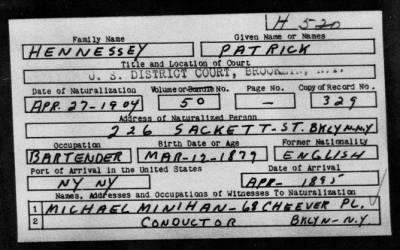 H 520
Family Name Given Name or Names
HENNESSEY PATRICK
Title and Location of Court
U. S. DISTRICT COURT, BROOKLYN, N.Y.
Date of Naturalization Volume or Bundle No. Page No. Copy of Record No.
APR. 27-1904 50 — 329
Address of Naturalized Person
226 SACKETT-ST. BKLYN-N.Y
Occupation Birth Date or Age Former Nationality
BARTENDER MAR-12-1879 ENGLISH
Port of Arrival in the United States Date of Arrival
NY NY APR- 1895
Names, Addresses and Occupations of Witnesses To Naturalization
1 MICHAEL MINIHAN-68 CHEEVER PL.
2 CONDUCTOR BKLYN-N.Y